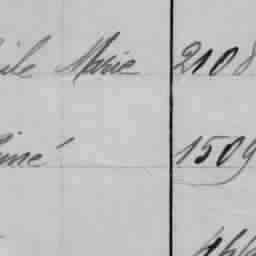 ile Marie 2108
imé 1509